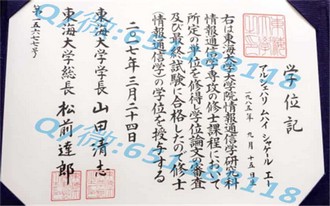 学位記
一九八五年 九月十五日生
右は東海大学大学院情報通信学研究科
情報通信学専攻の修士課程において
所定の単位を修得し学位論文の審査
及び最終試験に合格したので修士
(情報通信学)の学位を授与する
二〇一七年三月二十四日
東海大学学長 山田清志
東海大学総長 松前達郎
第一五六七七号